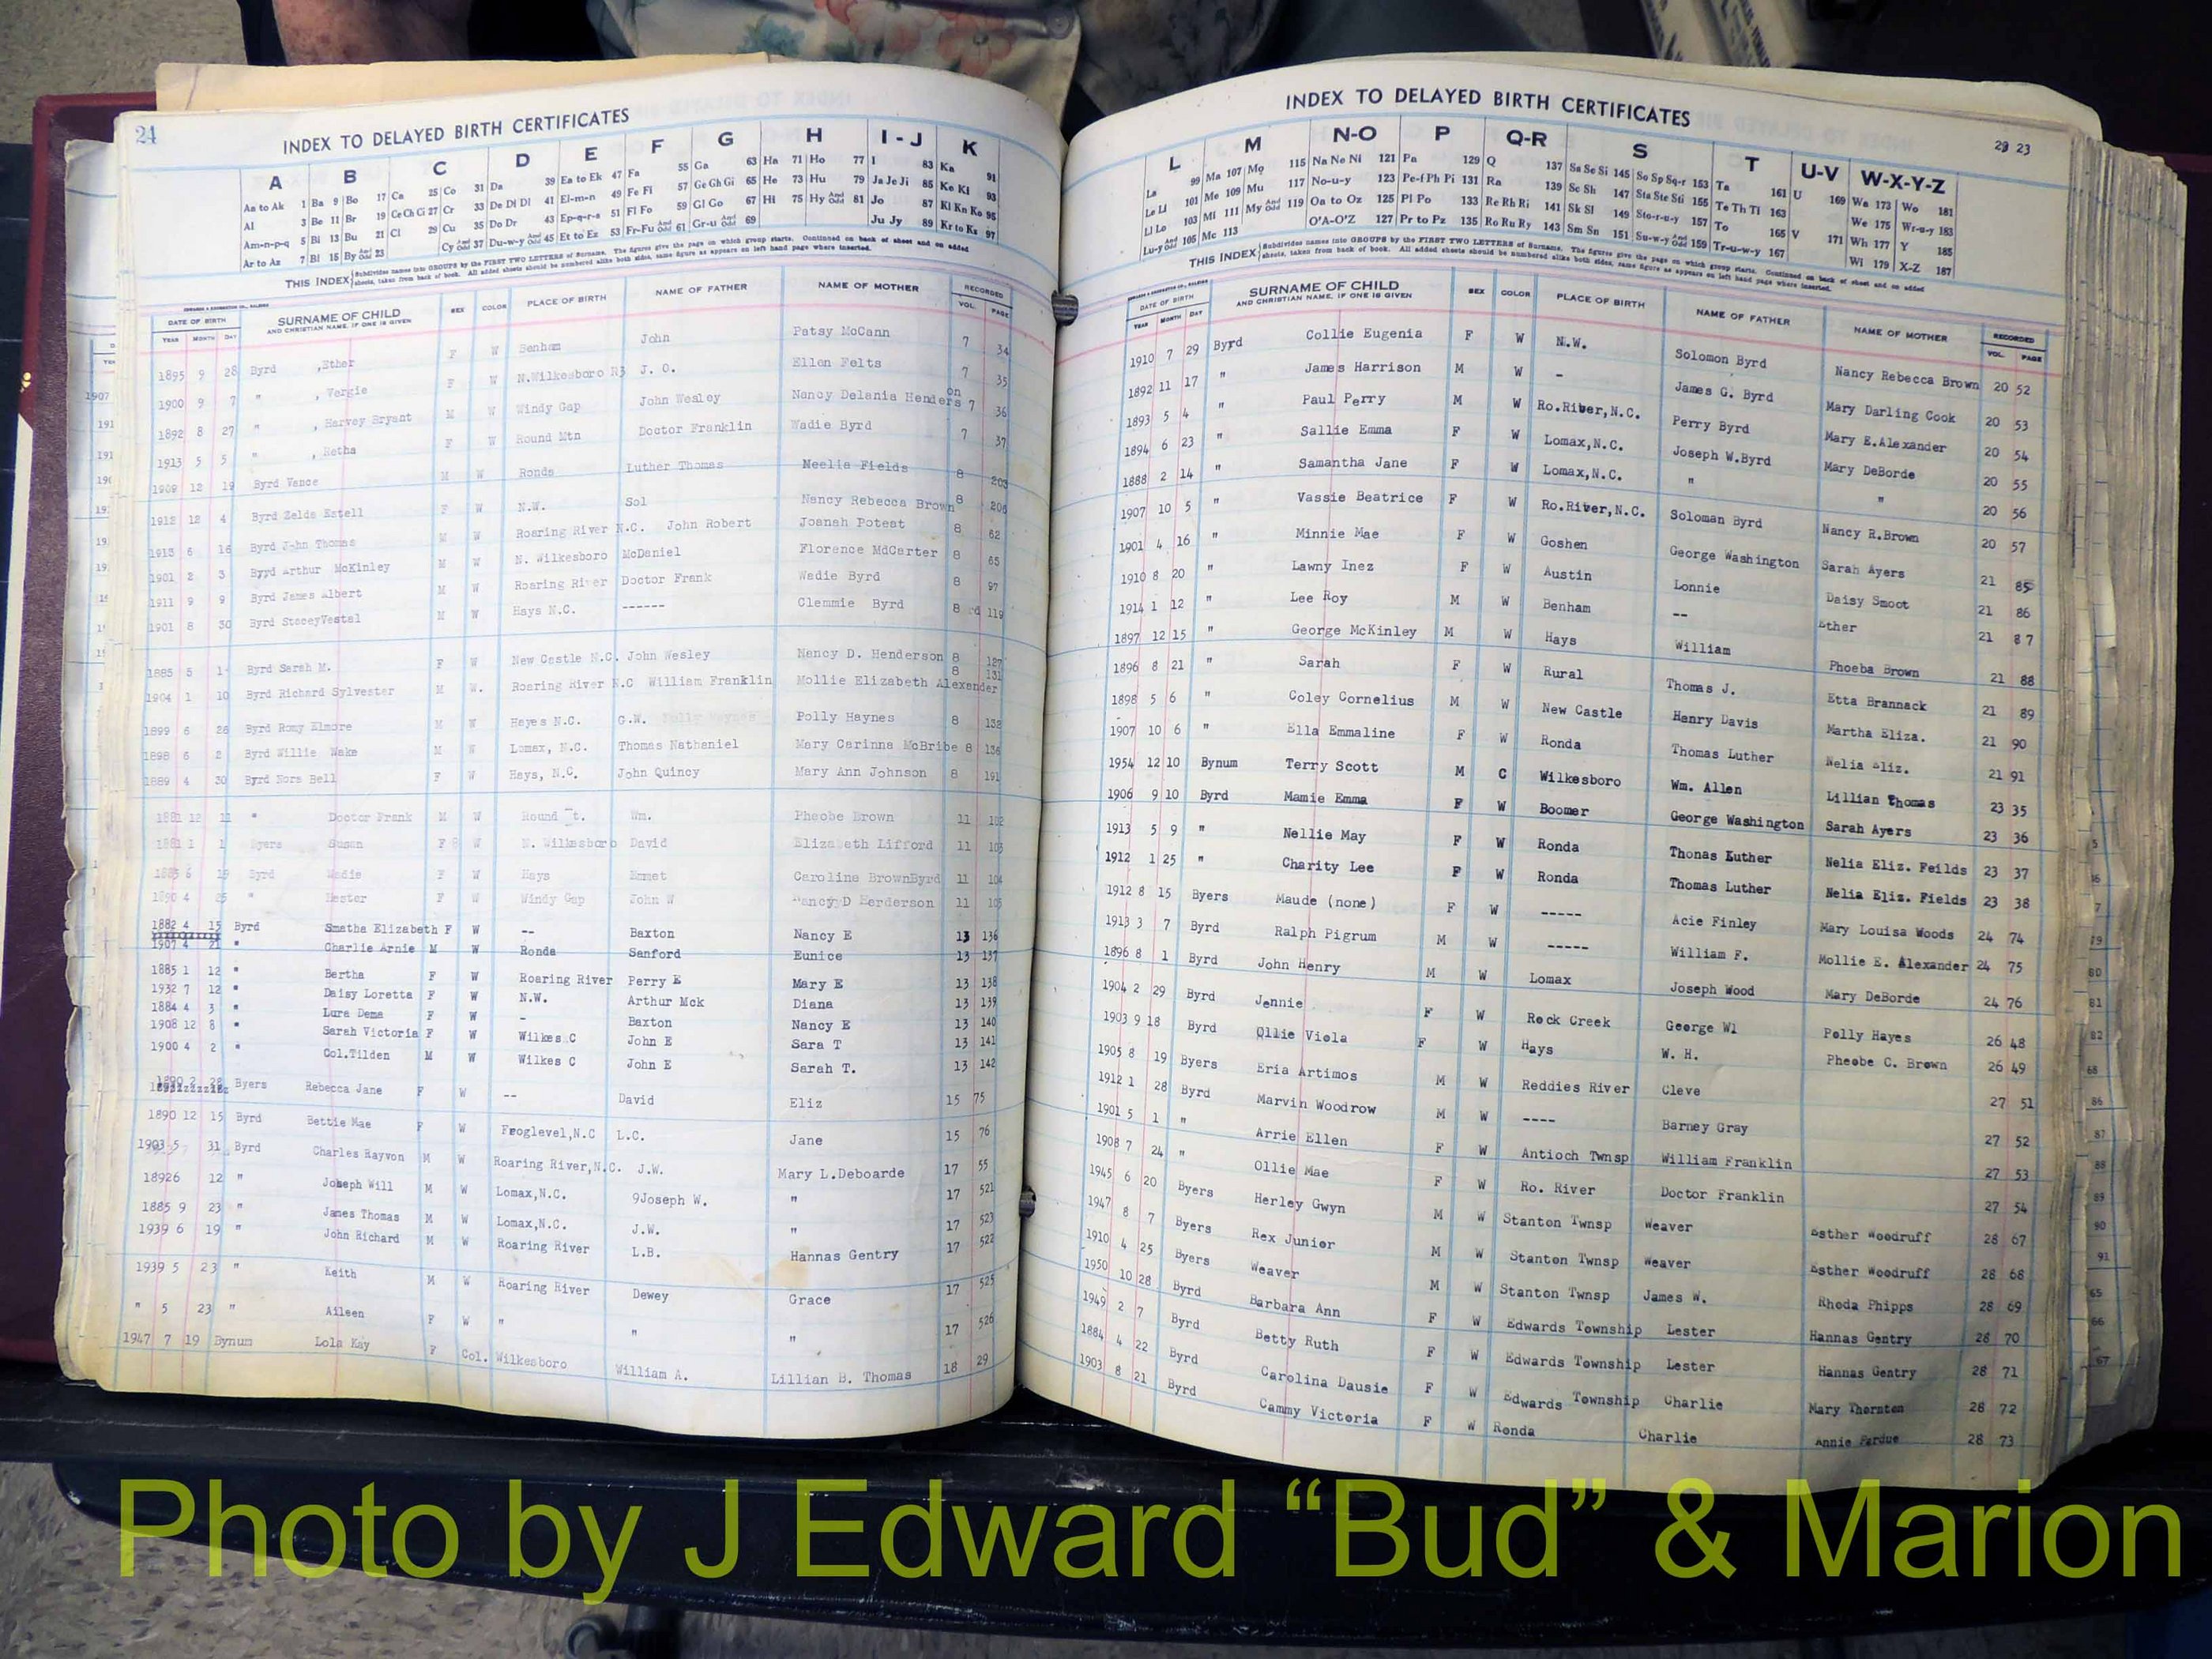 24
INDEX TO DELAYED BIRTH CERTIFICATES
A B C D E F G H I - J K
Aa to Ak 1 Ba 9 Bo 17 Ca 25 Co 31 Da 39 Ea to Ek 47 Fa 55 Ga 63 Ha 71 Ho 77 I 83 Ka 91
Al 3 Be 11 Br 19 Ce Ch Ci 27 Cr 33 De Di Dl 41 El-m-n 49 Fe Fi 57 Ge Gh Gi 65 He 73 Hu 79 Ja Je Ji 85 Ke Ki 93
Am-n-p-q 5 Bi 13 Bu 21 Cl 29 Cu 35 Do Dr 43 Ep-q-r-s 51 Fl Fo 59 Gl Go 67 Hi 75 Hy And Odd 81 Jo 87 Kl Kn Ko 95
Ar to Az 7 Bl 15 By And Odd 23 Cy And Odd 37 Du-w-y And Odd 45 Et to Ez 53 Fr-Fu And Odd 61 Gr-u And Odd 69 Ju Jy 89 Kr to Ks 97
THIS INDEX Subdivides names into GROUPS by the FIRST TWO LETTERS of Surname. The figures give the page on which group starts. Continued on back of sheet and on added
sheets, taken from back of book. All added sheets should be numbered alike both sides, same figure as appears on left hand page where inserted.
DATE OF BIRTH SURNAME OF CHILD SEX COLOR PLACE OF BIRTH NAME OF FATHER NAME OF MOTHER RECORDED
YEAR MONTH DAY AND CHRISTIAN NAME, IF ONE IS GIVEN VOL. PAGE
1895 9 28 Byrd ,Ether F W Benham John Patsy McCann 7 34
1900 9 7 " , Vergie F W N.Wilkesboro R3 J. O. Ellen Felts 7 35
1892 8 27 " , Harvey Bryant M W Windy Gap John Wesley Nancy Delania Henderson 7 36
1913 5 5 " , Retha F W Round Mtn Doctor Franklin Wadie Byrd 7 37
1909 12 19 Byrd Vance M W Ronda Luther Thomas Neelia Fields 8 203
1912 12 4 Byrd Zelda Estell F W N.W. Sol Nancy Rebecca Brown 8 206
1913 6 16 Byrd John Thomas M W Roaring River N.C. John Robert Joanah Poteat 8 62
1901 2 3 Byrd Arthur McKinley M W N. Wilkesboro McDaniel Florence MdCarter 8 65
1911 9 9 Byrd James Albert M W Roaring River Doctor Frank Wadie Byrd 8 97
1901 8 30 Byrd StaceyVestal M W Hays N.C. ------ Clemmie Byrd 8 119
1885 5 1 Byrd Sarah M. F W New Castle N.C. John Wesley Nancy D. Henderson 8 127
1904 1 10 Byrd Richard Sylvester M W. Roaring River N.C William Franklin Mollie Elizabeth Alexander 8 131
1899 6 26 Byrd Romy Elmore M W Hayes N.C. G.W. Polly Haynes 8 132
1898 6 2 Byrd Willie Wake M W Lomax, N.C. Thomas Nathaniel Mary Carinna McBribe 8 136
1889 4 30 Byrd Nora Bell F W Hays, N.C. John Quincy Mary Ann Johnson 8 191
1881 12 11 " Doctor Frank M W Round t. Wm. Pheobe Brown 11 102
1881 1 1 Byers Susan F W N. Wilkesboro David Elizabeth Lifford 11 103
1885 6 19 Byrd Wadie F W Hays Emmet Caroline BrownByrd 11 104
1890 4 25 " Hester F W Windy Gap John W Nancy D Herderson 11 105
1882 4 15 Byrd Smatha Elizabeth F W -- Baxton Nancy E 13 136
1907 4 21 " Charlie Arnie M W Ronda Sanford Eunice 13 137
1885 1 12 " Bertha F W Roaring River Perry E Mary E 13 138
1932 7 12 " Daisy Loretta F W N.W. Arthur Mck Diana 13 139
1884 4 3 " Lura Dema F W - Baxton Nancy E 13 140
1908 12 8 " Sarah Victoria F W Wilkes C John E Sara T 13 141
1900 4 2 " Col.Tilden M W Wilkes C John E Sarah T. 13 142
1890 2 28 Byers Rebecca Jane F W -- David Eliz 15 75
1890 12 15 Byrd Bettie Mae F W Froglevel,N.C L.C. Jane 15 76
1903 5 31 Byrd Charles Rayvon M W Roaring River,N.C. J.W. Mary L.Deboarde 17 55
18926 12 " Joseph Will M W Lomax,N.C. 9Joseph W. " 17 521
1885 9 23 " James Thomas M W Lomax,N.C. J.W. " 17 523
1939 6 19 " John Richard M W Roaring River L.B. Hannas Gentry 17 522
1939 5 23 " Keith M W Roaring River Dewey Grace 17 525
" 5 23 " Aileen F W " " " 17 526
1947 7 19 Bynum Lola Kay F Col. Wilkesboro William A. Lillian B. Thomas 18 29
23 23
INDEX TO DELAYED BIRTH CERTIFICATES
L M N-O P Q-R S T U-V W-X-Y-Z
La 99 Ma 107 Mo 115 Na Ne Ni 121 Pa 129 Q 137 Sa Se Si 145 So Sp Sq-r 153 Ta 161 U 169 Wa 173 Wo 181
Le Li 101 Me 109 Mu 117 No-u-y 123 Pe-f Ph Pi 131 Ra 139 Sc Sh 147 Sta Ste Sti 155 Te Th Ti 163 We 175 Wr-u-y 183
Ll Lo 103 Mi 111 My And Odd 119 Oa to Oz 125 Pl Po 133 Re Rh Ri 141 Sk Sl 149 Sto-r-u-y 157 To 165 V 171 Wh 177 Y 185
Lu-y And Odd 105 Mc 113 O'A-O'Z 127 Pr to Pz 135 Ro Ru Ry 143 Sm Sn 151 Su-w-y And Odd 159 Tr-u-w-y 167 Wi 179 X-Z 187
THIS INDEX Subdivides names into GROUPS by the FIRST TWO LETTERS of Surname. The figures give the page on which group starts. Continued on back of sheet and on added
sheets, taken from back of book. All added sheets should be numbered alike both sides, same figure as appears on left hand page where inserted.
DATE OF BIRTH SURNAME OF CHILD SEX COLOR PLACE OF BIRTH NAME OF FATHER NAME OF MOTHER RECORDED
YEAR MONTH DAY AND CHRISTIAN NAME, IF ONE IS GIVEN VOL. PAGE
1910 7 29 Byrd Collie Eugenia F W N.W. Solomon Byrd Nancy Rebecca Brown 20 52
1892 11 17 " James Harrison M W - James G. Byrd Mary Darling Cook 20 53
1893 5 4 " Paul Perry M W Ro.River,N.C. Perry Byrd Mary E.Alexander 20 54
1894 6 23 " Sallie Emma F W Lomax,N.C. Joseph W.Byrd Mary DeBorde 20 55
1888 2 14 " Samantha Jane F W Lomax,N.C. " " 20 56
1907 10 5 " Vassie Beatrice F W Ro.River,N.C. Soloman Byrd Nancy R.Brown 20 57
1901 4 16 " Minnie Mae F W Goshen George Washington Sarah Ayers 21 85
1910 8 20 " Lawny Inez F W Austin Lonnie Daisy Smoot 21 86
1914 1 12 " Lee Roy M W Benham -- Ether 21 87
1897 12 15 " George McKinley M W Hays William Phoeba Brown 21 88
1896 8 21 " Sarah F W Rural Thomas J. Etta Brannack 21 89
1898 5 6 " Coley Cornelius M W New Castle Henry Davis Martha Eliza. 21 90
1907 10 6 " Ella Emmaline F W Ronda Thomas Luther Nelia Eliz. 21 91
1954 12 10 Bynum Terry Scott M C Wilkesboro Wm. Allen Lillian Thomas 23 35
1906 9 10 Byrd Mamie Emma F W Boomer George Washington Sarah Ayers 23 36
1913 5 9 " Nellie May F W Ronda Thonas Luther Nelia Eliz. Feilds 23 37
1912 1 25 " Charity Lee F W Ronda Thomas Luther Nelia Eliz. Fields 23 38
1912 8 15 Byers Maude (none) F W ----- Acie Finley Mary Louisa Woods 24 74
1913 3 7 Byrd Ralph Pigrum M W ----- William F. Mollie E. Alexander 24 75
1896 8 1 Byrd John Henry M W Lomax Joseph Wood Mary DeBorde 24 76
1904 2 29 Byrd Jennie F W Rock Creek George Wl Polly Hayes 26 48
1903 9 18 Byrd Ollie Viola F W Hays W. H. Pheobe C. Brown 26 49
1905 8 19 Byers Eria Artimos M W Reddies River Cleve 27 51
1912 1 28 Byrd Marvin Woodrow M W ---- Barney Gray 27 52
1901 5 1 " Arrie Ellen F W Antioch Twnsp William Franklin 27 53
1908 7 24 " Ollie Mae F W Ro. River Doctor Franklin 27 54
1945 6 20 Byers Herley Gwyn M W Stanton Twnsp Weaver Esther Woodruff 28 67
1947 8 7 Byers Rex Junior M W Stanton Twnsp Weaver Esther Woodruff 28 68
1910 4 25 Byers Weaver M W Stanton Twnsp James W. Rhoda Phipps 28 69
1950 10 28 Byrd Barbara Ann F W Edwards Township Lester Hannas Gentry 28 70
1949 2 7 Byrd Betty Ruth F W Edwards Township Lester Hannas Gentry 28 71
1884 4 22 Byrd Carolina Dausie F W Edwards Township Charlie Mary Thornton 28 72
1903 8 21 Byrd Cammy Victoria F W Ronda Charlie Annie Pardue 28 73
Photo by J Edward “Bud” & Marion